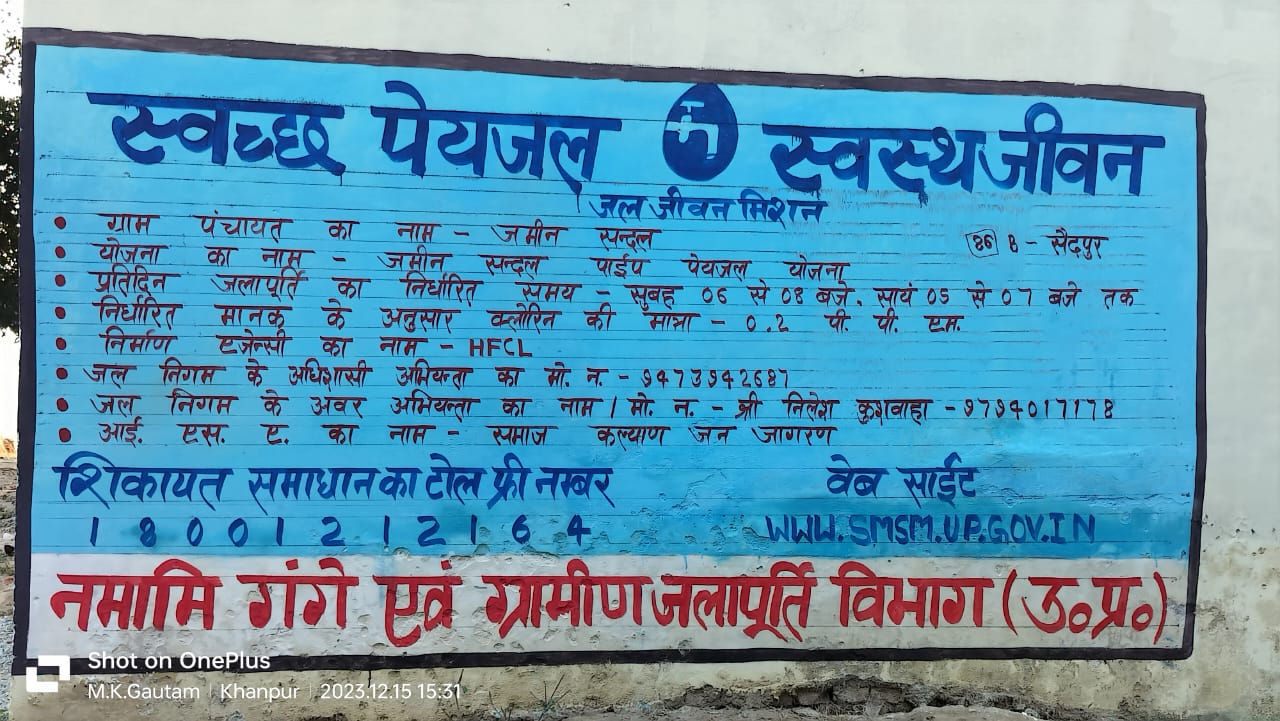 स्वच्छ पेयजल स्वस्थ जीवन
जल जीवन मिशन
• ग्राम पंचायत का नाम - जमीन सन्दल
86 B - सैदपुर
• योजना का नाम - जमीन सन्दल पाईप पेयजल योजना
• प्रतिदिन जलापूर्ति का निर्धारित समय - सुबह 06 से 08 बजे, सायं 05 से 07 बजे तक
• निर्धारित मानक के अनुसार क्लोरिन की मात्रा - 0.2 पी. पी. एम.
• निर्माण एजेन्सी का नाम - HFCL
• जल निगम के अधिशासी अभियन्ता का मो. न. - 9473942687
• जल निगम के अवर अभियन्ता का नाम / मो. न. - श्री निलेश कुशवाहा - 9794017178
• आई. एस. ए. का नाम - समाज कल्याण जन जागरण
शिकायत समाधान का टोल फ्री नम्बर
18001212164
वेब साईट
WWW.SMSM.UP.GOV.IN
नमामि गंगे एवं ग्रामीण जलापूर्ति विभाग (उ॰प्र॰)
Shot on OnePlus
M.K.Gautam | Khanpur | 2023.12.15 15:31